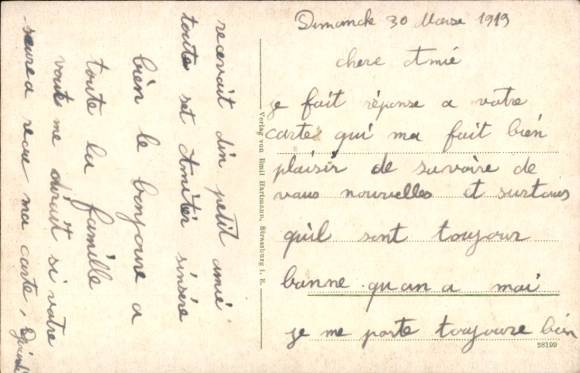 Dimanche 30 Marse 1919
chere Amié
je fait réponse a votre
carte qui ma fait bien
plaisir de savoire de
vaus nouvelles et surtous
qu'il sont toujour
bonne quan a moi
je me porte toujoure bien
recevoit din petit amié
toute set Amitér sinsére
bien le bonjoure a
toute la famille
vout me diroit si votre
seurea recu ma carte,
Verlag von Emil Hartmann, Strassburg i. E.
28199